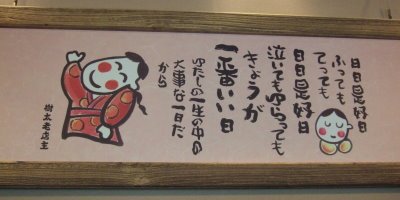 日日是好日
ふっても
てっても
日日是好日
泣いてもわらっても
きょうが
一番いい日
わたしの一生の中の
大事な一日だ
から
樹太老店主